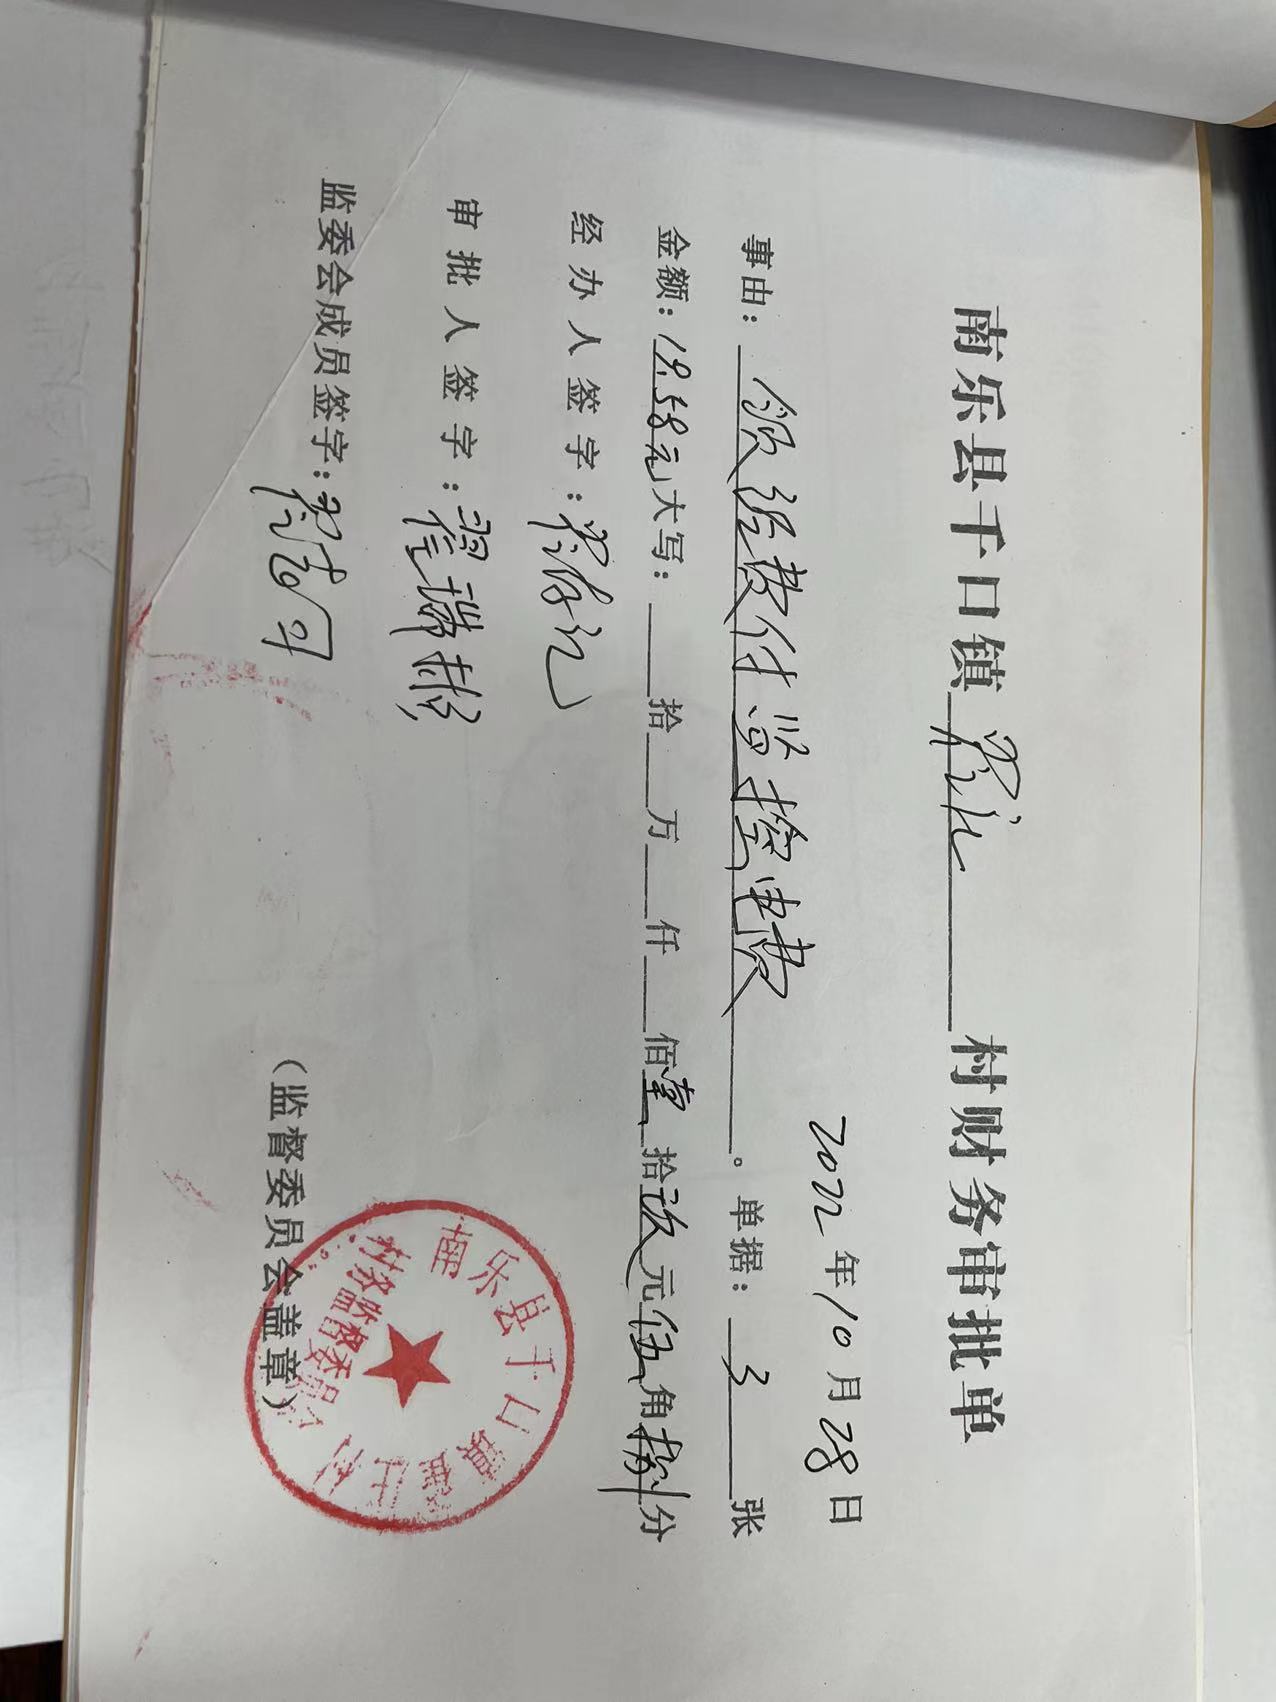 南乐县千口镇翟庄村财务审批单
2022年10月28日
事由：领经费付监控电费。单据：3张
金额：19.58元大写：拾万仟佰壹拾玖元伍角捌分
经办人签字：
审批人签字：翟瑞彬
监委会成员签字：
（监督委员会盖章）
南乐县千口镇翟庄村
村务监督委员会